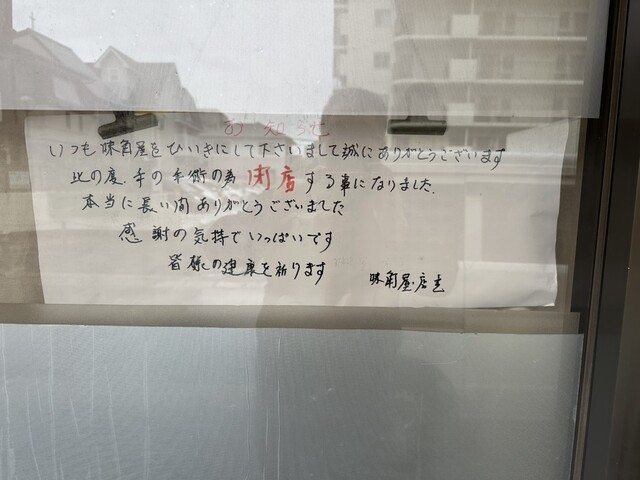 お知らせ
いつも味角屋をひいきにして下さいまして誠にありがとうございます
此の度、手の手術の為 閉店する事になりました。
本当に長い間ありがとうございました
感謝の気持でいっぱいです
皆様の健康を祈ります 味角屋店主